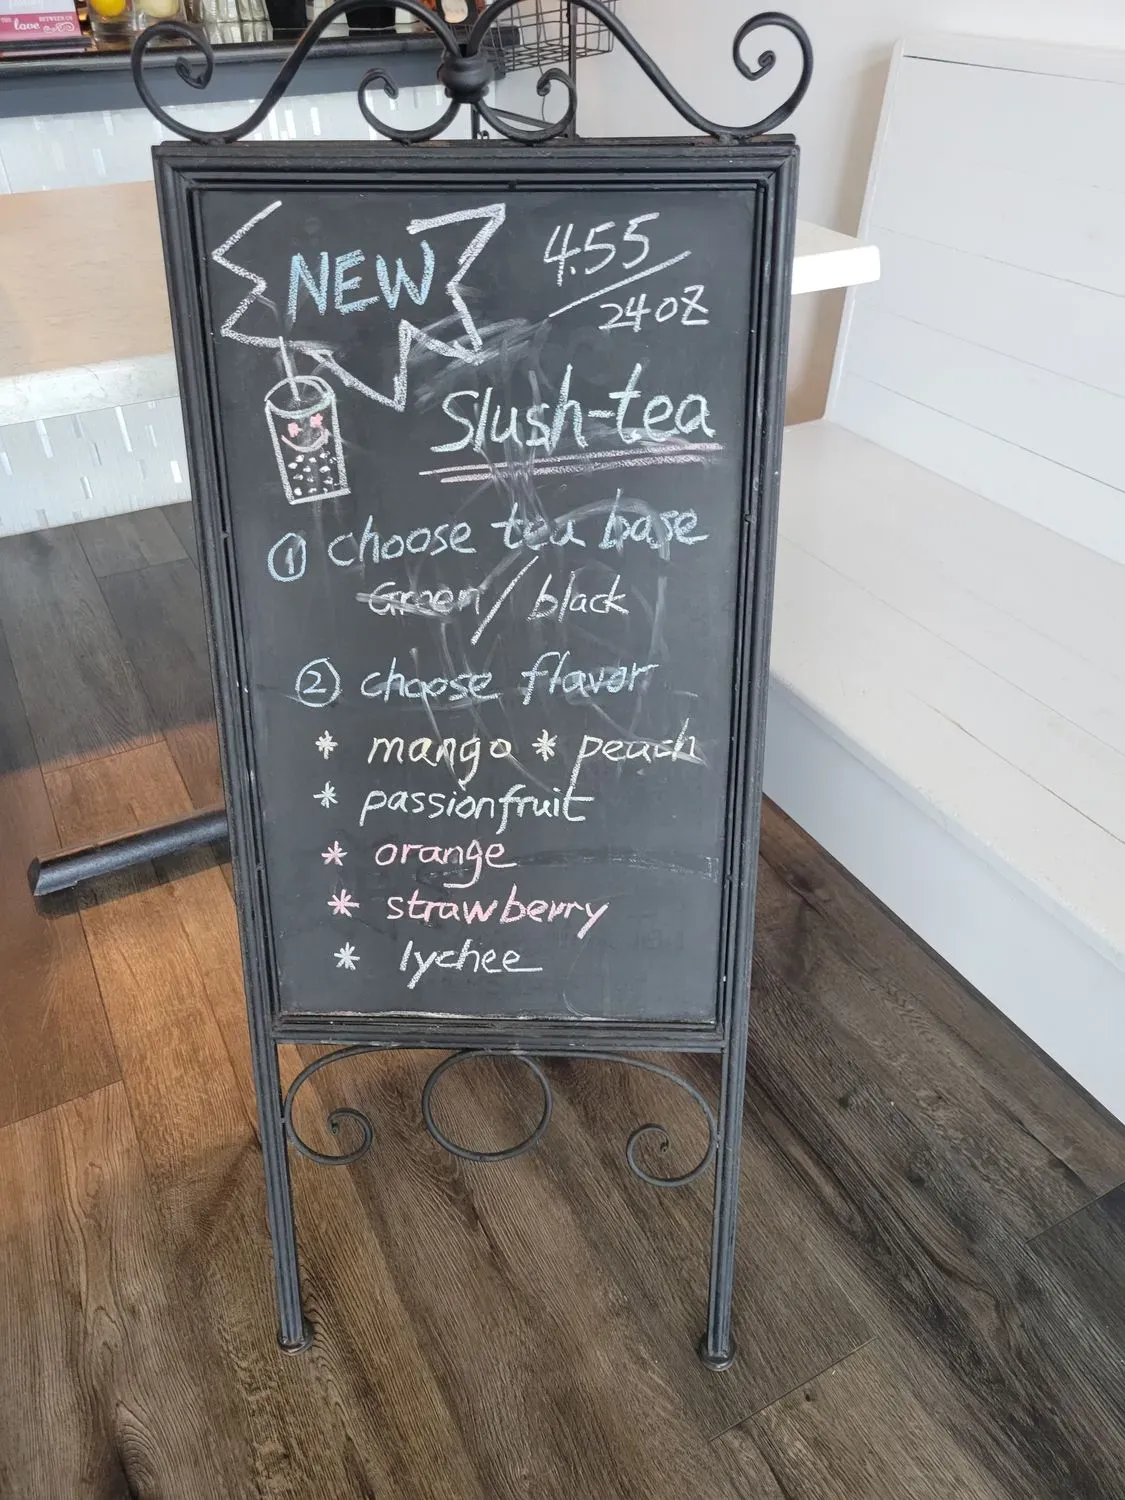 love BETWEEN US
NEW
4.55/24oz
Slush-tea
① choose tea base
Green/black
② choose flavor
* mango * peach
* passionfruit
* orange
* strawberry
* lychee